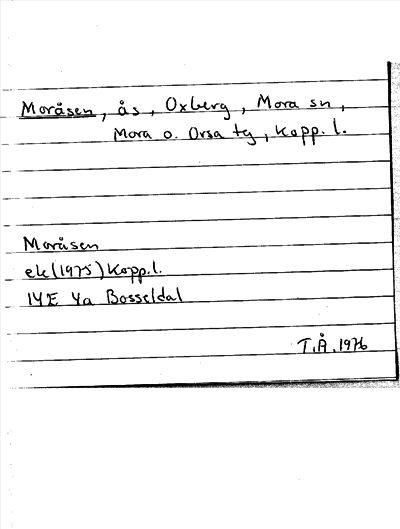 Moråsen, ås, Oxberg, Mora sn,
Mora o. Orsa tg, Kopp. l.
Moråsen
ek (1975) Kopp. l.
14E 4a Bosseldal
T.Å. 1976